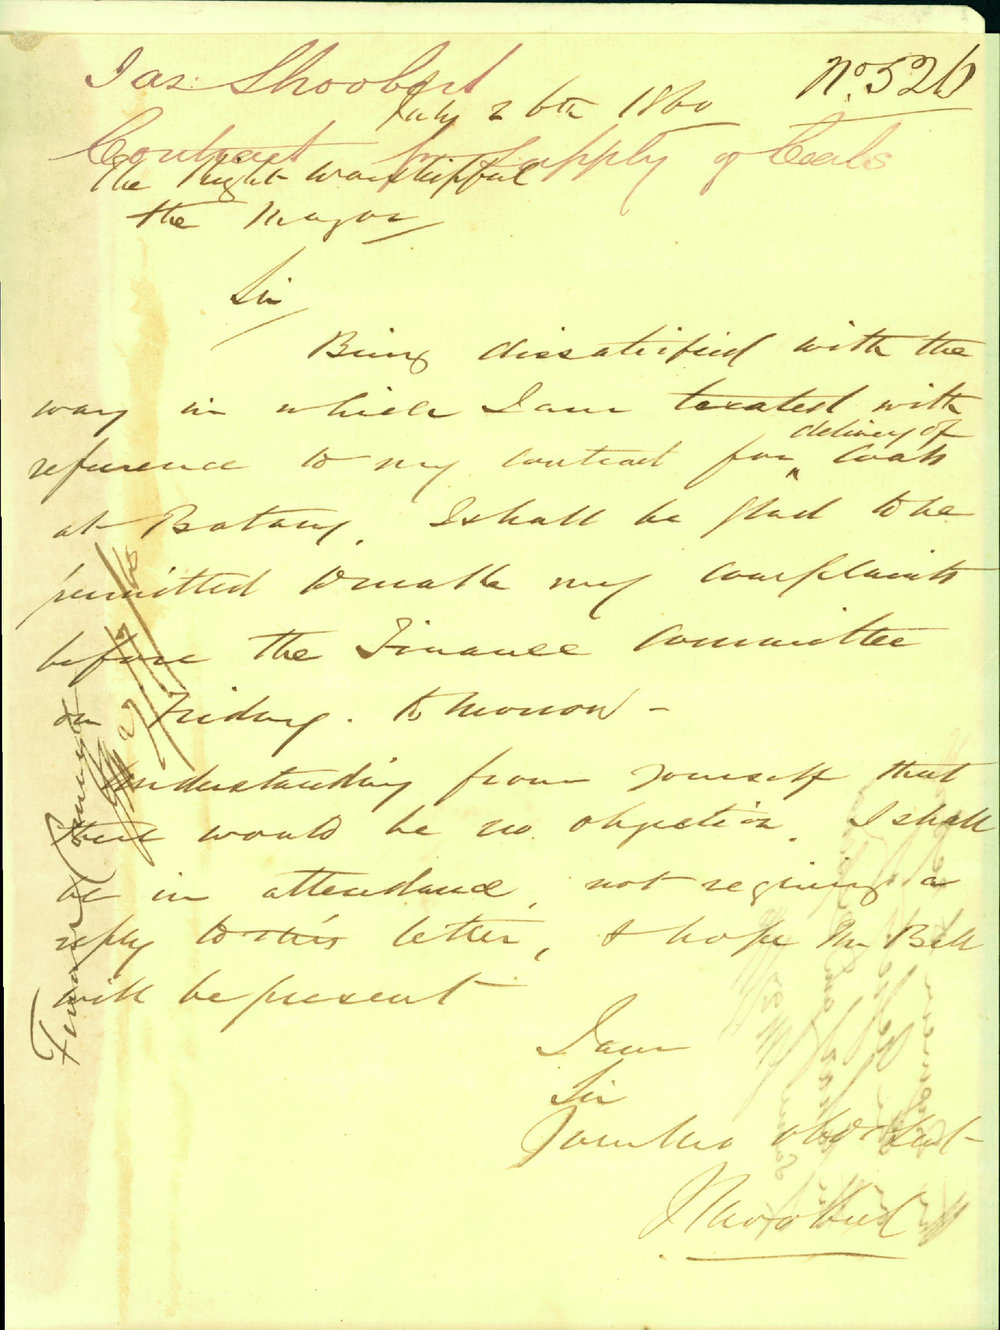 Jas: Shoobert
No. 526
July 26th 1860
Contract for supply of Coals
The Right Worshipful
the Mayor
Sir
Being dissatisfied with the
way in which I am treated with
delivery of
reference to my contract for coals
at Botany, I shall be glad to be
permitted to make my complaints
before the Finance Committee
on Friday. tomorrow -
Understanding from yourself that
there would be no objection. I shall
be in attendance, not requiring a
reply to this letter, & hope Mr Bell
will be present
I am
Sir
Your
J Shoobert
Finance Committee
27/7/60